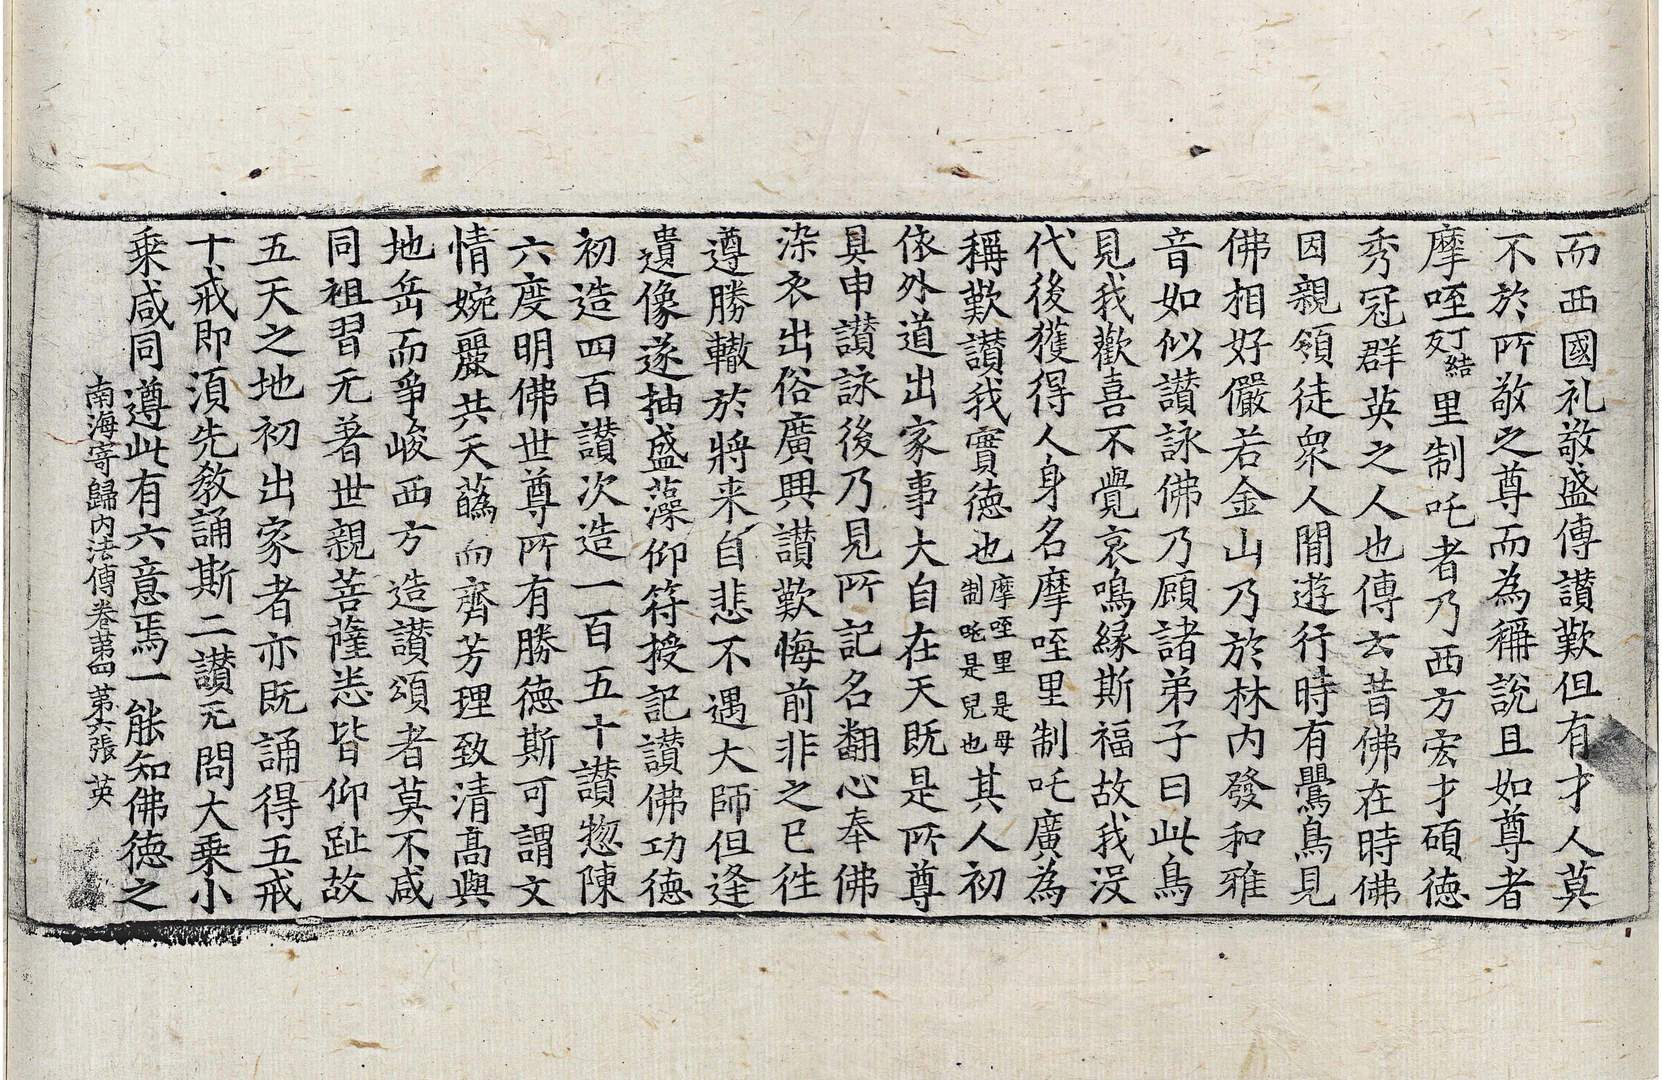 而西國礼敬盛傳讃歎但有才人莫
不於所敬之尊而為稱說且如尊者
摩咥丁結反里制吒者乃西方宏才碩德
秀冠群英之人也傳云昔佛在時佛
因親領徒衆人閒遊行時有鸎鳥見
佛相好儼若金山乃於林內發和雅
音如似讃詠佛乃顧諸弟子曰此鳥
見我歡喜不覺哀鳴緣斯福故我没
代後獲得人身名摩咥里制吒廣為
稱歎讃我實德也摩咥里是母制吒是兒也其人初
依外道出家事大自在天既是所尊
具申讃詠後乃見所記名翻心奉佛
染衣出俗廣興讃歎悔前非之已往
遵勝轍於將来自悲不遇大師但逢
遺像遂抽盛藻仰符授記讃佛功德
初造四百讃次造一百五十讃惣陳
六度明佛世尊所有勝德斯可謂文
情婉麗共天蘤而齊芳理致清高與
地岳而爭峻西方造讃頌者莫不咸
同祖習无著世親菩薩悉皆仰趾故
五天之地初出家者亦既誦得五戒
十戒即湏先教誦斯二讃无問大乗小
乗咸同遵此有六意焉一能知佛德之
南海寄歸內法傳卷苐四 苐六張 英